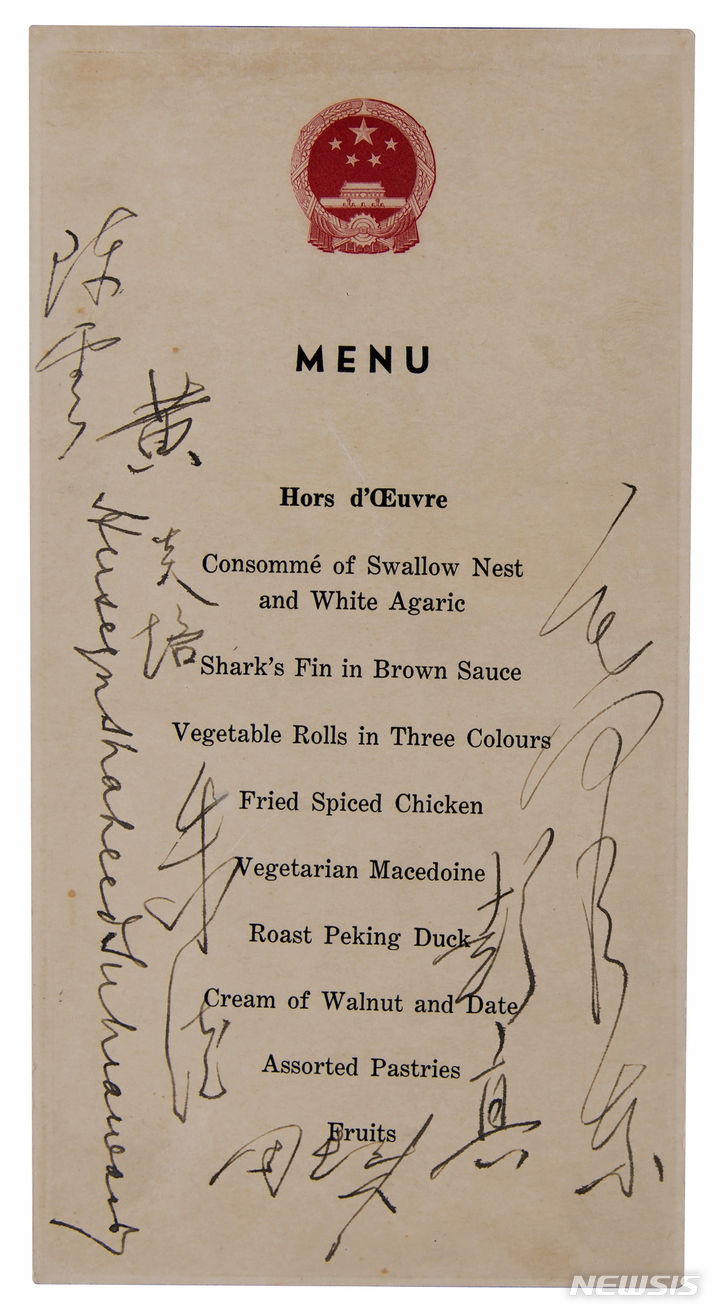 MENU
Hors d'Œuvre
Consommé of Swallow Nest
and White Agaric
Shark's Fin in Brown Sauce
Vegetable Rolls in Three Colours
Fried Spiced Chicken
Vegetarian Macedoine
Roast Peking Duck
Cream of Walnut and Date
Assorted Pastries
Fruits
黄炎培
Huseyn Shaheed Suhrawardy
朱德
彭真
毛泽东
周恩来
NEWSIS